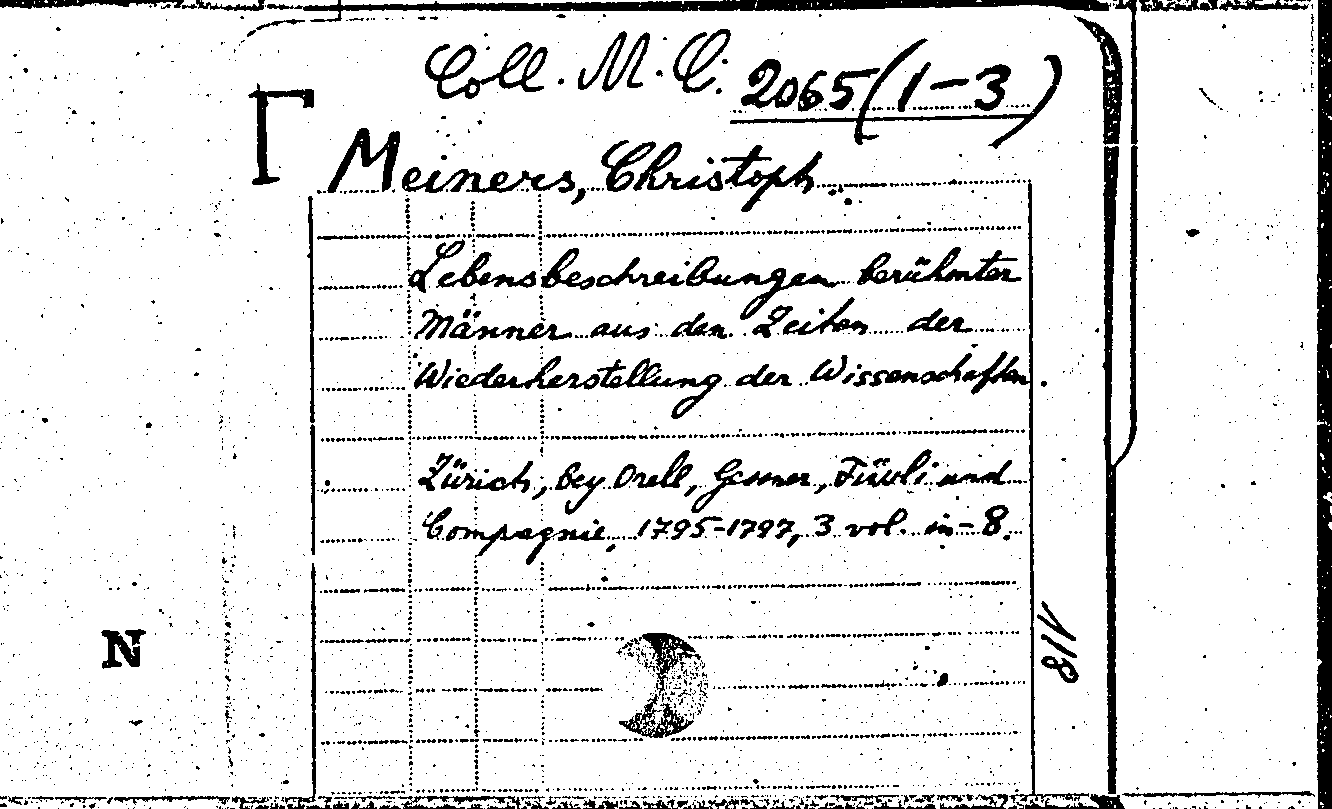 Coll. M. C. 2065 (1-3)
Meiners, Christoph.
Lebensbeschreibungen berühmter
Männer aus den Zeiten der
Wiederherstellung der Wissenschaften.
Zürich, bey Orell, Gessner, Füssli und
Compagnie, 1795-1797, 3 vol. in-8.
N